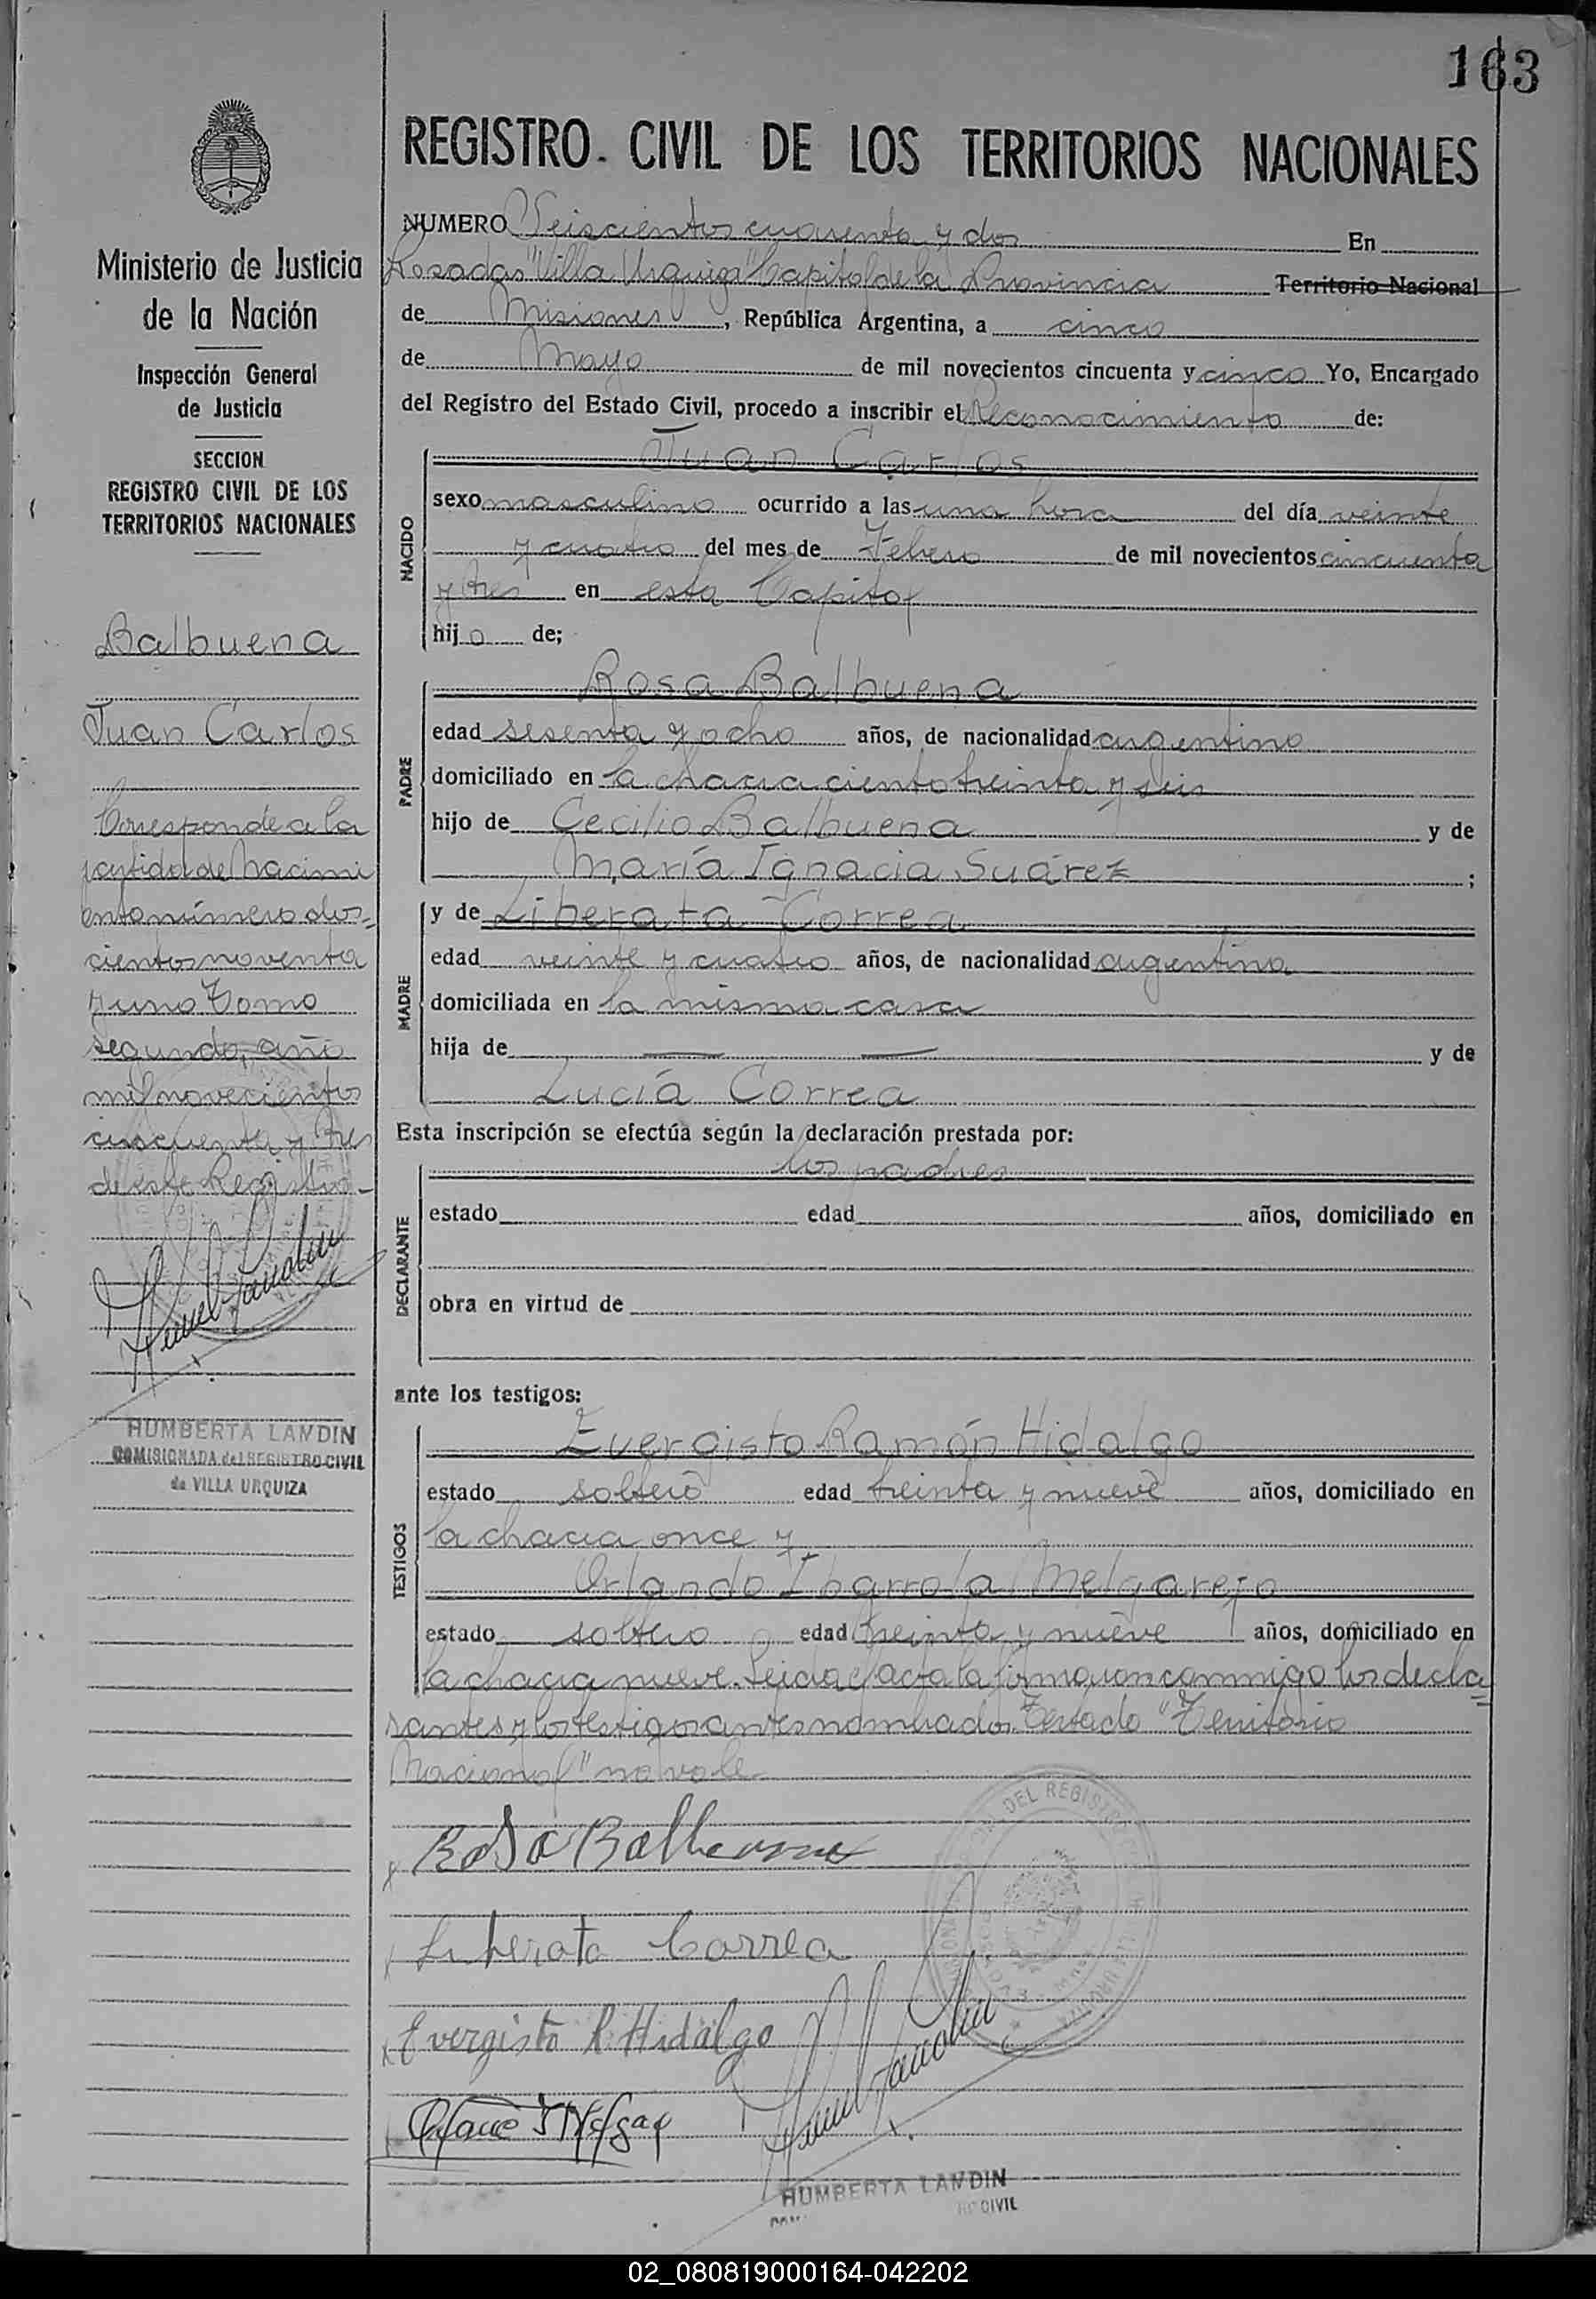 163
REGISTRO CIVIL DE LOS TERRITORIOS NACIONALES
Ministerio de Justicia
de la Nación
Inspección General
de Justicia
SECCION
REGISTRO CIVIL DE LOS
TERRITORIOS NACIONALES
Balbuena
Juan Carlos
Corresponde a la
partida de Nacimi
ento número dos=
cientos noventa
y uno Tomo
segundo, año
mil novecientos
cincuenta y tres
de este Registro-
HUMBERTA LANDIN
COMISIONADA del REGISTRO CIVIL
de VILLA URQUIZA
NUMERO Seiscientos cuarenta y dos En
Posadas "Villa Urquiza" Capital de la Provincia Territorio Nacional
de Misiones, República Argentina, a cinco
de Mayo de mil novecientos cincuenta y cinco Yo, Encargado
del Registro del Estado Civil, procedo a inscribir el Reconocimiento de:
NACIDO
Juan Carlos
sexo masculino ocurrido a las una hora del día veinte
y cuatro del mes de Febrero de mil novecientos cincuenta
y tres en esta Capital
hijo de;
PADRE
Rosa Balbuena
edad sesenta y ocho años, de nacionalidad argentino
domiciliado en la chacra ciento treinta y seis
hijo de Cecilio Balbuena y de
María Ignacia Suárez ;
MADRE
y de Liberata Correa
edad veinte y cuatro años, de nacionalidad argentina
domiciliada en la misma casa
hija de — — y de
Lucía Correa
Esta inscripción se efectúa según la declaración prestada por:
DECLARANTE
los padres
estado edad años, domiciliado en
obra en virtud de
ante los testigos:
TESTIGOS
Evergisto Ramón Hidalgo
estado soltero edad treinta y nueve años, domiciliado en
la chacra once y
Orlando Ibarrola Melgarejo
estado soltero edad treinta y nueve años, domiciliado en
la chacra nueve. Leida el acta la firmaron conmigo los decla=
rantes y los testigos antes nombrados. Testado "Territorio
Nacional" no vale
Rosa Balbuena
Liberata Correa
Evergisto R. Hidalgo
HUMBERTA LANDIN
CIVIL
02_080819000164-042202